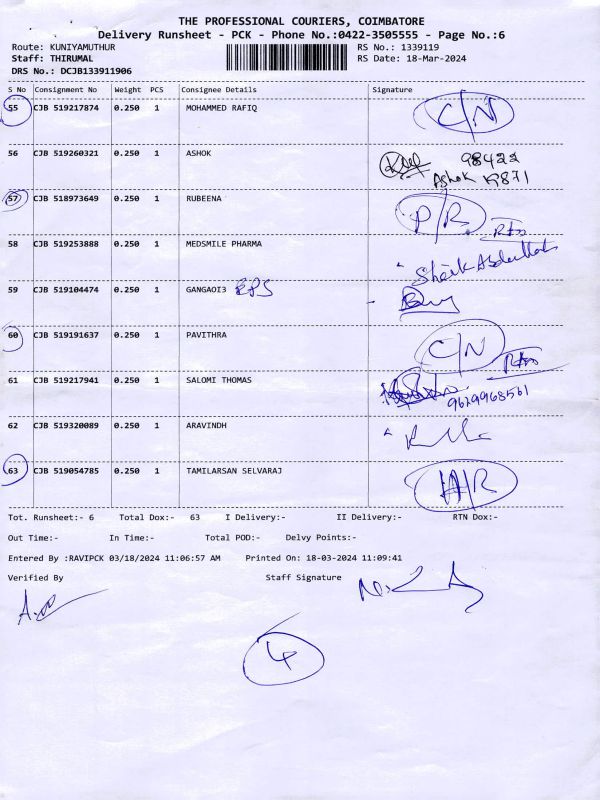 THE PROFESSIONAL COURIERS, COIMBATORE
Delivery Runsheet - PCK - Phone No.:0422-3505555 - Page No.:6
Route: KUNIYAMUTHUR RS No.: 1339119
Staff: THIRUMAL RS Date: 18-Mar-2024
DRS No.: DCJB133911906
S No Consignment No Weight PCS Consignee Details Signature
55 CJB 519217874 0.250 1 MOHAMMED RAFIQ C/N
56 CJB 519260321 0.250 1 ASHOK 98422
Ashok
57 CJB 518973649 0.250 1 RUBEENA P/R
58 CJB 519253888 0.250 1 MEDSMILE PHARMA
Sheik Abdullah
59 CJB 519104474 0.250 1 GANGAOI3
60 CJB 519191637 0.250 1 PAVITHRA C/N
61 CJB 519217941 0.250 1 SALOMI THOMAS
9629968561
62 CJB 519320089 0.250 1 ARAVINDH
63 CJB 519054785 0.250 1 TAMILARSAN SELVARAJ
Tot. Runsheet:- 6 Total Dox:- 63 I Delivery:- II Delivery:- RTN Dox:-
Out Time:- In Time:- Total POD:- Delvy Points:-
Entered By :RAVIPCK 03/18/2024 11:06:57 AM Printed On: 18-03-2024 11:09:41
Verified By Staff Signature
4